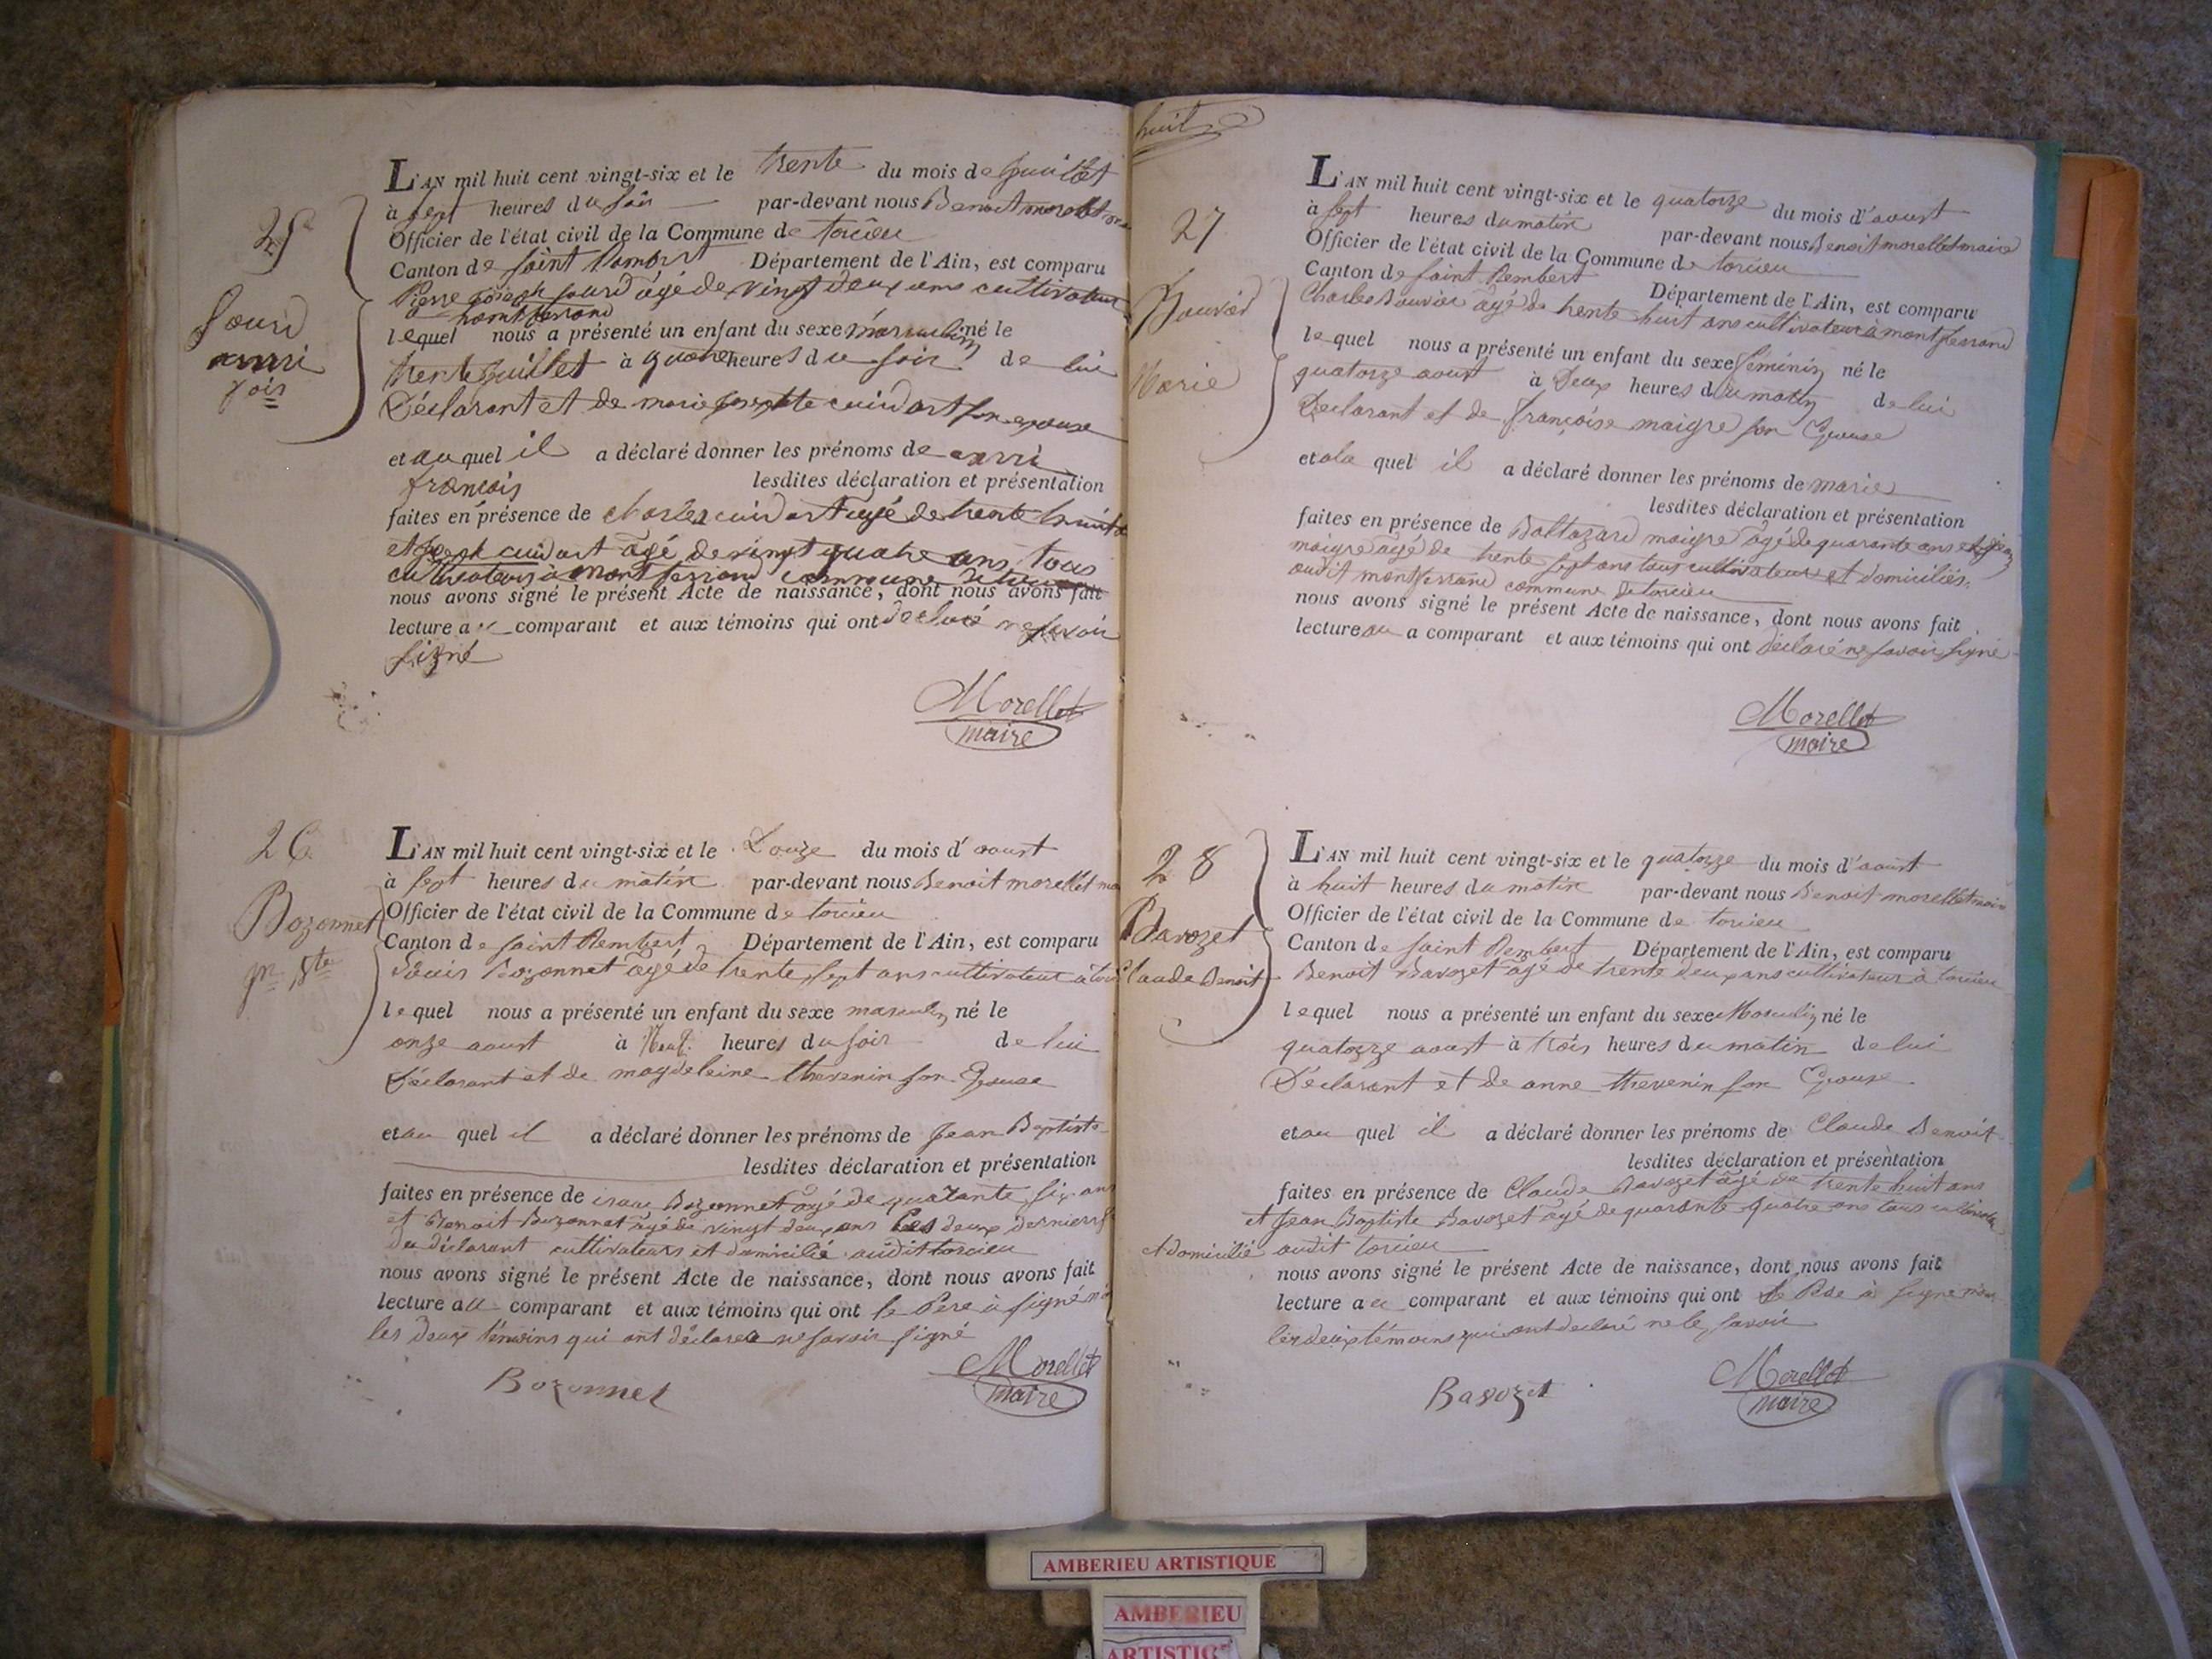 25e
Sourd
anrri
fois
L'AN mil huit cent vingt-six et le trente du mois de Juillet
à sept heures du soir par-devant nous Benoit morellet
Officier de l'état civil de la Commune de torcieu
Canton de saint Rambert Département de l'Ain, est comparu
Pierre joseph sourd âgé de vingt deux ans cultivateur
à montferrand
lequel nous a présenté un enfant du sexe masculin né le
trente juillet à quatre heures du soir de lui
Déclarant et de marie josephte cuidart son epouse
et auquel il a déclaré donner les prénoms de anrri
françois lesdites déclaration et présentation
faites en présence de charles cuidart agé de trente huit
et joseph cuidart âgé de vingt quatre ans tous
cultivateurs à montferrand commune de torcieu
nous avons signé le présent Acte de naissance, dont nous avons fait
lecture au comparant et aux témoins qui ont declaré ne savoir
signé
Morellet
maire
26
Bozonnet
jn Bte
L'AN mil huit cent vingt-six et le Douze du mois d'aoust
à sept heures du matin par-devant nous Benoit morellet
Officier de l'état civil de la Commune de torcieu
Canton de saint Rembert Département de l'Ain, est comparu
Louis Bozonnet âgé de trente sept ans cultivateur à
lequel nous a présenté un enfant du sexe masculin né le
onze aoust à Neuf heures du soir de lui
Déclarant et de magdeleine thevenin son Epouse
et au quel il a déclaré donner les prénoms de Jean Baptiste
lesdites déclaration et présentation
faites en présence de isaac Bozonnet agé de quarante six ans
et Benoit Bozonnet âgé de vingt deux ans Les deux derniers
du déclarant cultivateurs et domicilié audit torcieu
nous avons signé le présent Acte de naissance, dont nous avons fait
lecture au comparant et aux témoins qui ont le Pere à signé
les deux témoins qui ont déclaré ne savoir signé
Bozonnet
Morellet
maire
huit
27
Bouvier
Marie
L'AN mil huit cent vingt-six et le quatorze du mois d'aoust
à sept heures du matin par-devant nous Benoit morellet maire
Officier de l'état civil de la Commune de torcieu
Canton de saint Rembert Département de l'Ain, est comparu
Charles Bouvier âgé de trente huit ans cultivateur à montferrand
lequel nous a présenté un enfant du sexe féminin né le
quatorze aoust à Deux heures du matin de lui
Declarant et de françoise maigre son Epouse
et ala quel il a déclaré donner les prénoms de marie
lesdites déclaration et présentation
faites en présence de Baltazard maigre âgé de quarante ans et
maigre âgé de trente sept ans tous cultivateur et domiciliés
audit montferrand commune de torcieu
nous avons signé le présent Acte de naissance, dont nous avons fait
lecture au a comparant et aux témoins qui ont déclaré ne savoir signé
Morellet
maire
28
Bavozet
Claude Benoit
L'AN mil huit cent vingt-six et le quatorze du mois d'aoust
à huit heures du matin par-devant nous Benoit morellet maire
Officier de l'état civil de la Commune de torcieu
Canton de saint Rembert Département de l'Ain, est comparu
Benoit Bavozet âgé de trente deux ans cultivateur à torcieu
lequel nous a présenté un enfant du sexe Masculin né le
quatorze aoust à trois heures du matin de lui
Déclarant et de anne thevenin son Epouse
et au quel il a déclaré donner les prénoms de Claude Benoit
lesdites déclaration et présentation
faites en présence de Claude Bavozet âgé de trente huit ans
et Jean Baptiste Bavozet âgé de quarante quatre ans tous
et domicilié audit torcieu
nous avons signé le présent Acte de naissance, dont nous avons fait
lecture au comparant et aux témoins qui ont le Pere à signé
les deux témoins qui ont declaré ne le savoir
Bavozet
Morellet
maire
AMBERIEU ARTISTIQUE
AMBERIEU